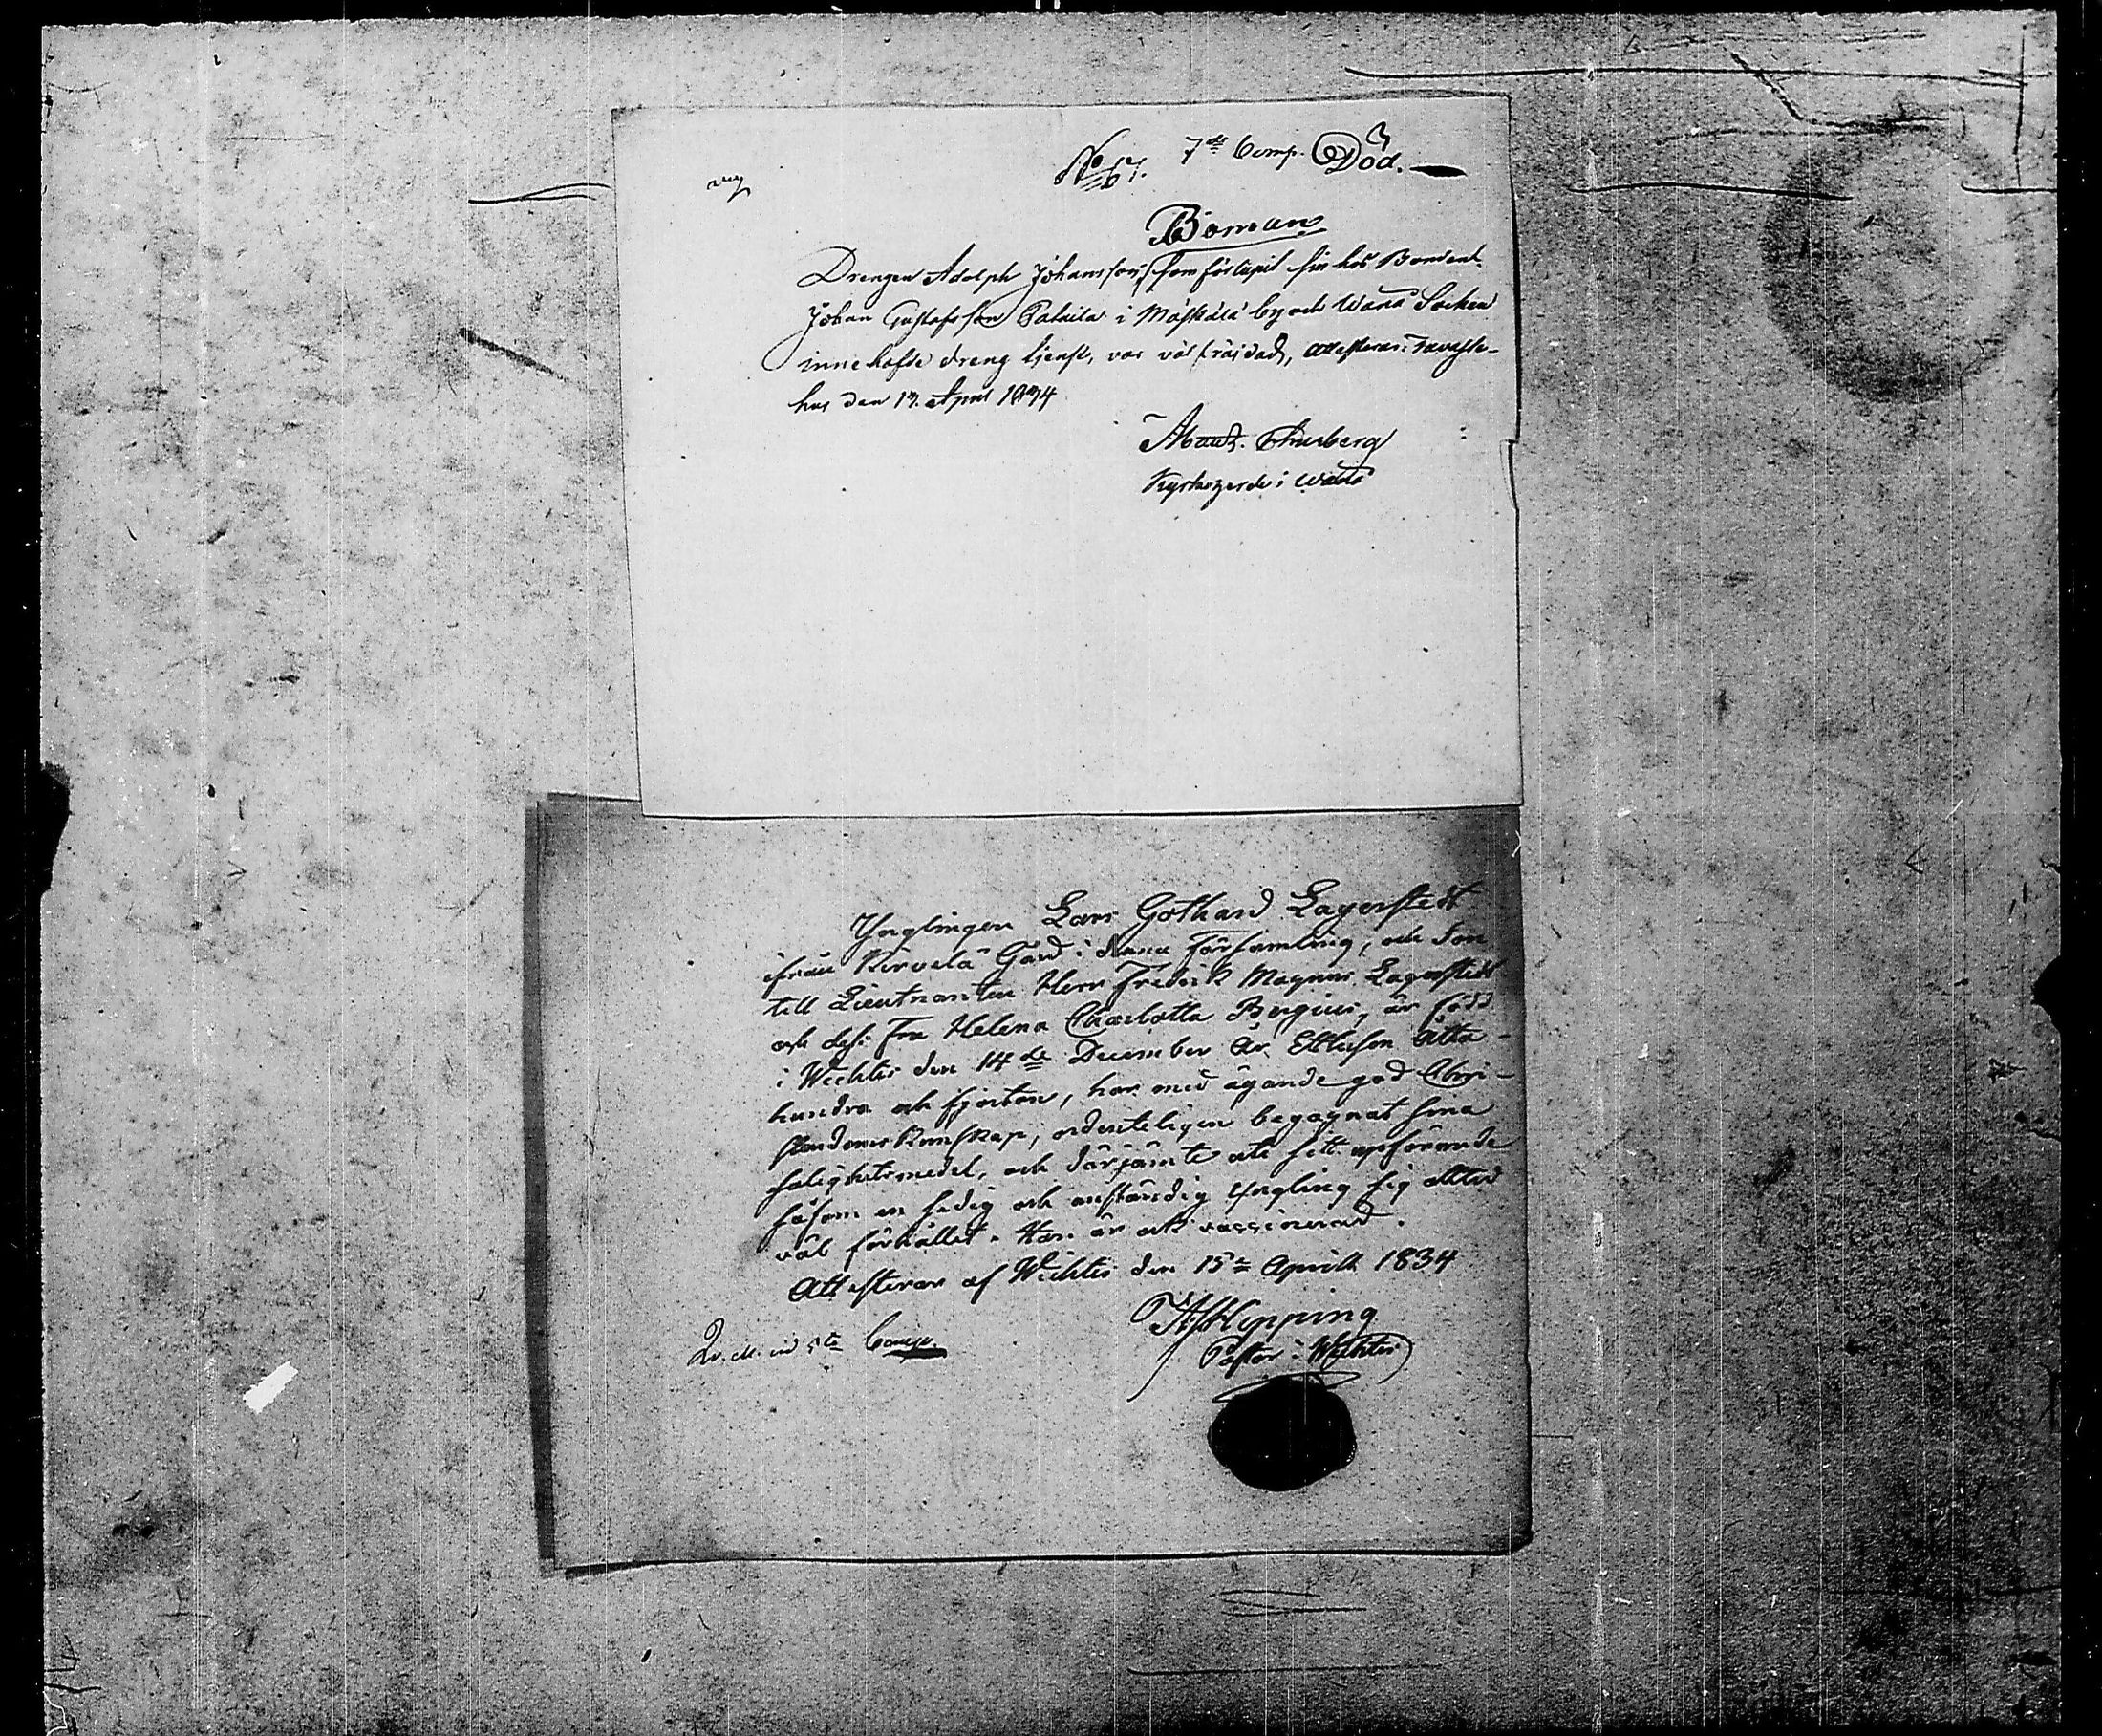 No 67. 7de Comp. Död.
Boman
Drengen Adolph Johansson, som förlupit sin hos Bonden
Johan Gustafsson Palaila i Mäskälä by och Wånå Socken
innehafde dreng tjenst, var väl fräjdad, attesteras: Tavaste-
hus den 17. April 1834
Kyrkoherde i Wånå
Ynglingen Lars Gothard Lagerstedt
ifrån Kirvelä Gård i denna Församling, och Son
till Lieutnanten Herr Fredrik Magnus Lagerstedt
och dess Fru Helena Charlotta Bergius, är född
i Wichtis den 14de December År Ettusen Åtta-
hundra och fjorton, har med ägande god Chri-
stendoms Kunskap, ordenteligen begagnat sina
salighetsmedel, och därjämte uti sitt upförande
såsom en sedig och anständig Yngling sig alltid
väl förhållit. Han är ock vaccinerad.
Attesteras af Wichtis den 15de Aprill 1834
Hipping
Pastor i Wichtis
vid 5te Comp.